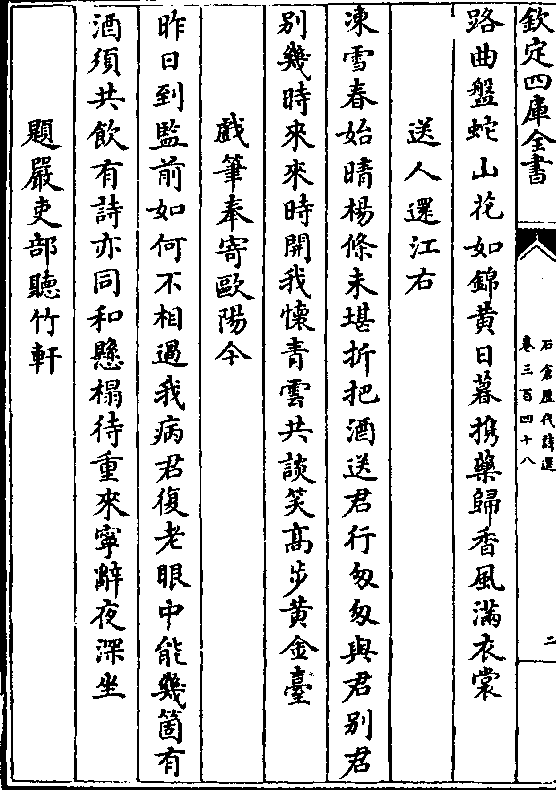 欽定四庫全書
石倉歷代詩選
卷三百四十八
二
路曲盤蛇山花如錦黄日暮携藥歸香風滿衣裳
送人還江右
凍雪春始晴楊條未堪折把酒送君行匆匆與君别君
别幾時來來時開我懷青雲共談笑髙步黄金臺
戯筆奉寄歐陽令
昨日到監前如何不相過我病君復老眼中能幾箇有
酒須共飲有詩亦同和懸榻待重來寧辭夜深坐
題嚴吏部聽竹軒